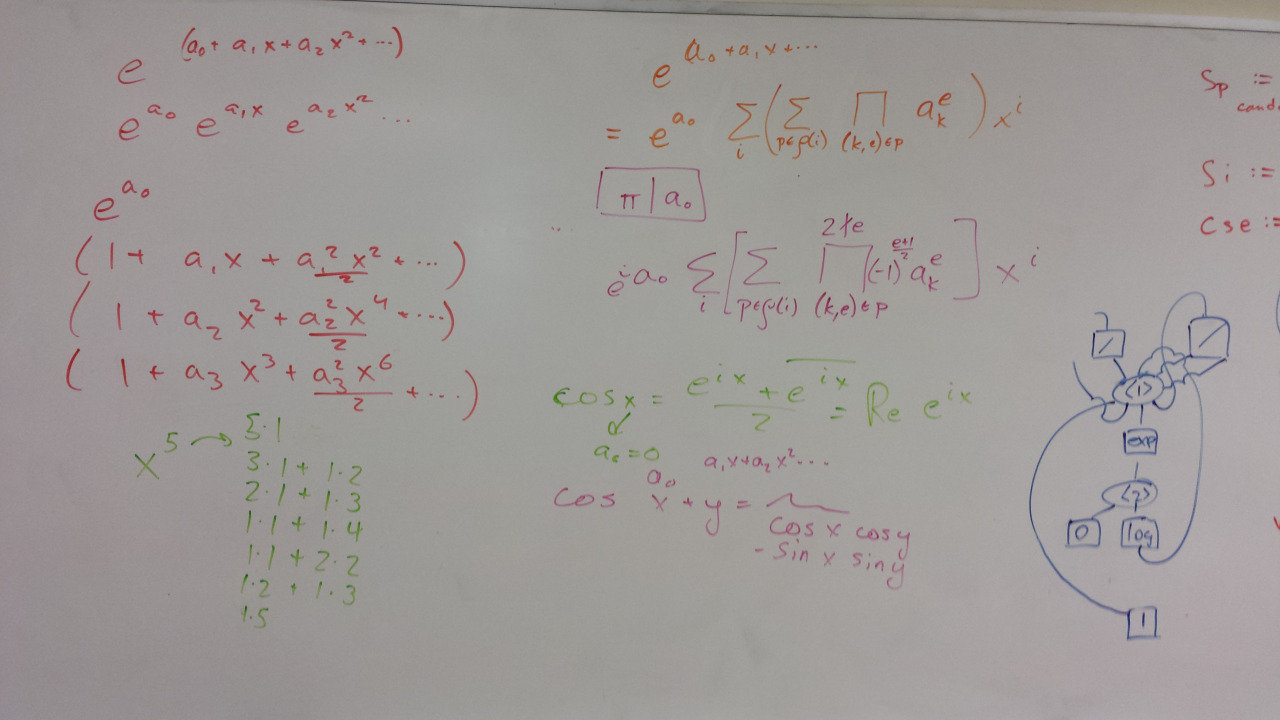 e^(a₀ + a₁x + a₂x² + ...)
e^a₀ e^a₁x e^a₂x² ...
e^a₀
(1 + a₁x + a₁²x²/2 + ...)
(1 + a₂x² + a₂²x⁴/2 + ...)
(1 + a₃x³ + a₃²x⁶/2 + ...)
x⁵ → 5·1
3·1 + 1·2
2·1 + 1·3
1·1 + 1·4
1·1 + 2·2
1·2 + 1·3
1·5
e^a₀ + a₁x + ...
= e^a₀ Σ_i (Σ_p∈℘(i) ∏_(k,e)∈p a_k^e) x^i
π | a₀
e^i a₀ Σ_i [Σ_p∈℘(i) ∏_(k,e)∈p^2∤e (-1)^(e+1)/2 a_k^e] x^i
cos x = (e^ix + e^ix)/2 = Re e^ix
a₀ = 0
a₀ a₁x + a₂x² ...
cos x + y =
cos x cos y
- sin x sin y
Sp :=
cand
Si :=
Cse :=
/ /
<1>
exp
<?>
0 log
1